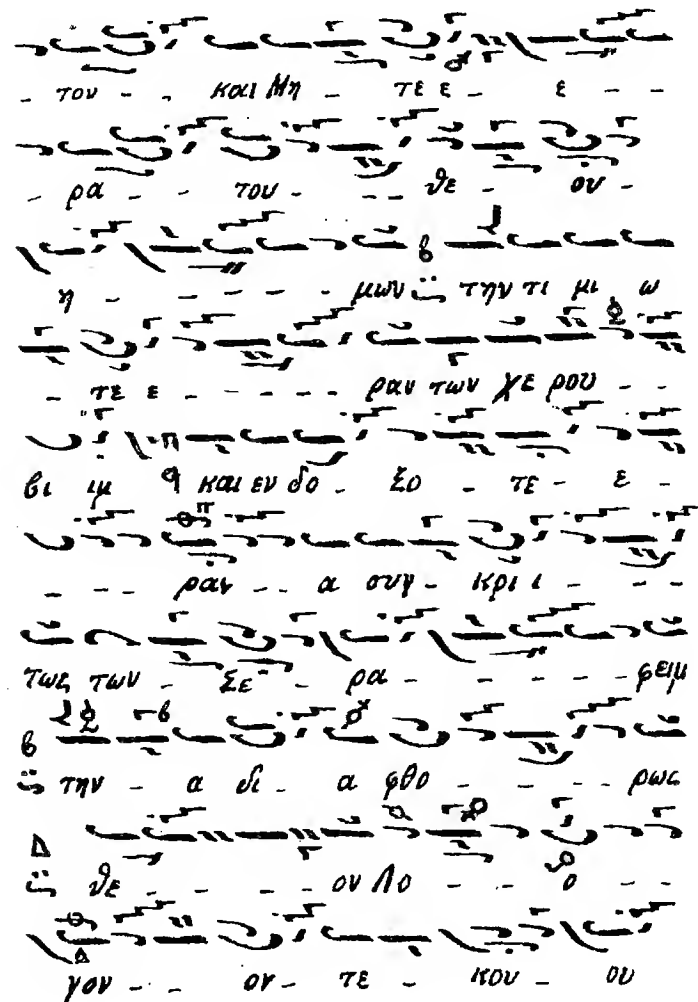 - τον - - και Μη - τε ε - ε - -
- ρα - - του - - - θε - ου -
η - - - - - - μων την τι μι ω
- τε ε - - - - - - ραν των χε ρου - -
βι ιμ και εν δο - ξο - τε - ε -
- - - - ραν - - α συγ - κρι ι - - -
τως των - Σε - ρα - - - - - φειμ
β την - α δι - α φθο - - - - - ρως
Δ θε - - - - - ον Λο - - - ο - -
γον - - ον - τε - κου - ου